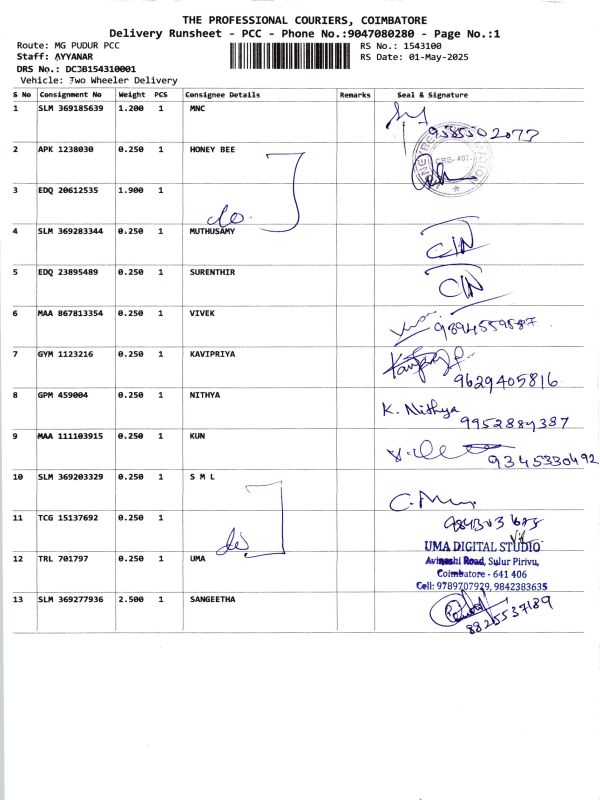 THE PROFESSIONAL COURIERS, COIMBATORE
Delivery Runsheet - PCC - Phone No.:9047080280 - Page No.:1
Route: MG PUDUR PCC RS No.: 1543100
Staff: AYYANAR RS Date: 01-May-2025
DRS No.: DCJB154310001
Vehicle: Two Wheeler Delivery
S No Consignment No Weight PCS Consignee Details Remarks Seal & Signature
1 SLM 369185639 1.200 1 MNC
9385502077
2 APK 1238030 0.250 1 HONEY BEE
CBE-407
3 EDQ 20612535 1.900 1
do.
4 SLM 369283344 0.250 1 MUTHUSAMY
C/N
5 EDQ 23895489 0.250 1 SURENTHIR
C/N
6 MAA 867813354 0.250 1 VIVEK
9894559587
7 GYM 1123216 0.250 1 KAVIPRIYA
9629405816
8 GPM 459004 0.250 1 NITHYA K. Nithya
9952889387
9 MAA 111103915 0.250 1 KUN
9345330492
10 SLM 369203329 0.250 1 S M L
11 TCG 15137692 0.250 1
do
UMA DIGITAL STUDIO
12 TRL 701797 0.250 1 UMA Avinashi Road, Sulur Pirivu,
Coimbatore - 641 406
Cell: 9789707929, 9842383635
13 SLM 369277936 2.500 1 SANGEETHA
8825537189